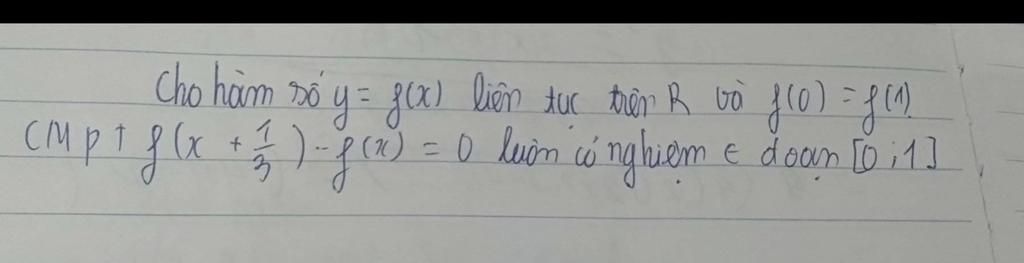 Cho hàm số y = f(x) liên tục trên R và f(0) = f(1)
CM pt f(x + 1/3) - f(x) = 0 luôn có nghiệm ∈ đoạn [0;1]